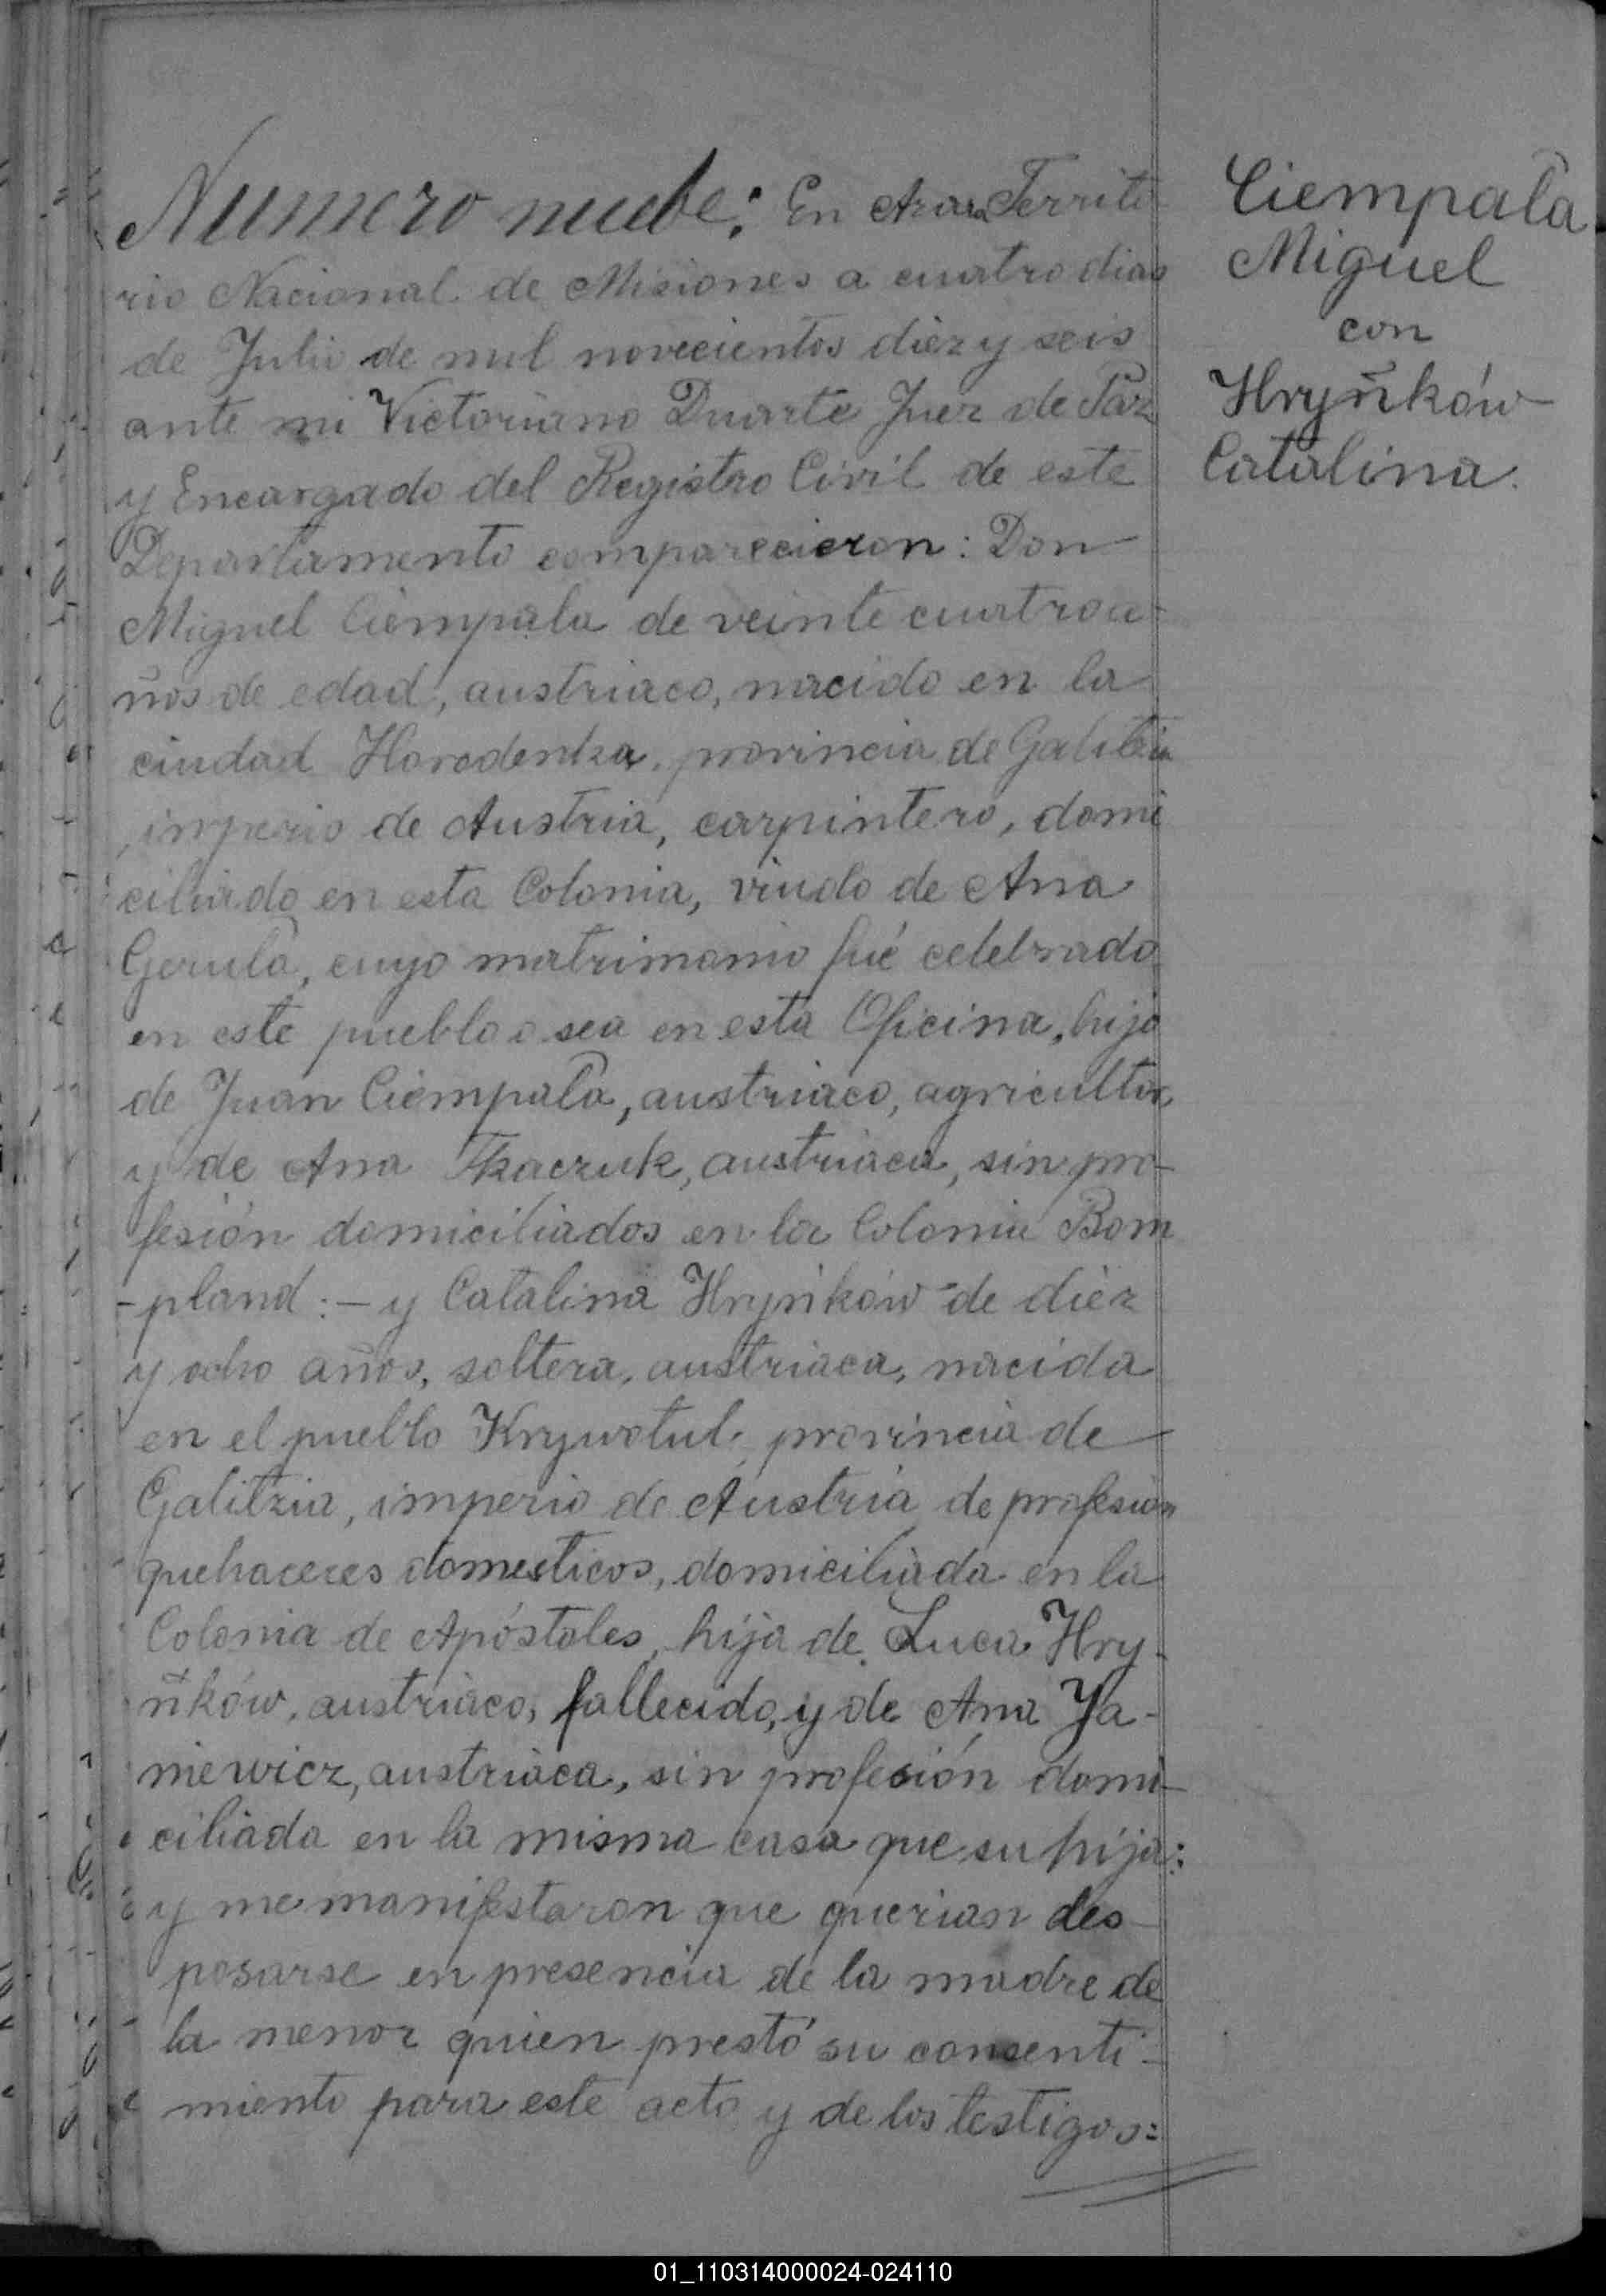 Numero nuebe: En Azara Territo
rio Nacional de Misiones a cuatro dias
de Julio de mil novecientos diez y seis
ante mi Victoriano Duarte Juez de Paz
y Encargado del Registro Civil de este
Departamento comparecieron: Don
Miguel Ciempala de veinte cuatro a-
ños de edad, austriaco, nacido en la
ciudad Horodenka, provincia de Galitzia
, imperio de Austria, carpintero, domi
ciliado en esta Colonia, viudo de Ana
Gerula, cuyo matrimonio fué celebrado
en este pueblo o sea en esta Oficina, hijo
de Juan Ciempała, austriaco, agricultor,
y de Ana Tkaczuk, austriaca, sin pro-
fesión domiciliados en la Colonia Bom
-pland:- y Catalina Hryńków de diez
y ocho años, soltera, austriaca, nacida
en el pueblo Krywotul, provincia de
Galitzia, imperio de Austria de profesion
quehaceres domesticos, domiciliada en la
Colonia de Apóstoles, hija de Luca Hry-
ñków, austriaco, fallecido, y de Ana Ya-
niewicz, austriaca, sin profesión domi-
ciliada en la misma casa que su hija:
y me manifestaron que querian des-
posarse en presencia de la madre de
la menor quien prestó su consenti-
miento para este acto y de los testigos:
Ciempała
Miguel
con
Hryñków
Catalina.
01_110314000024-024110